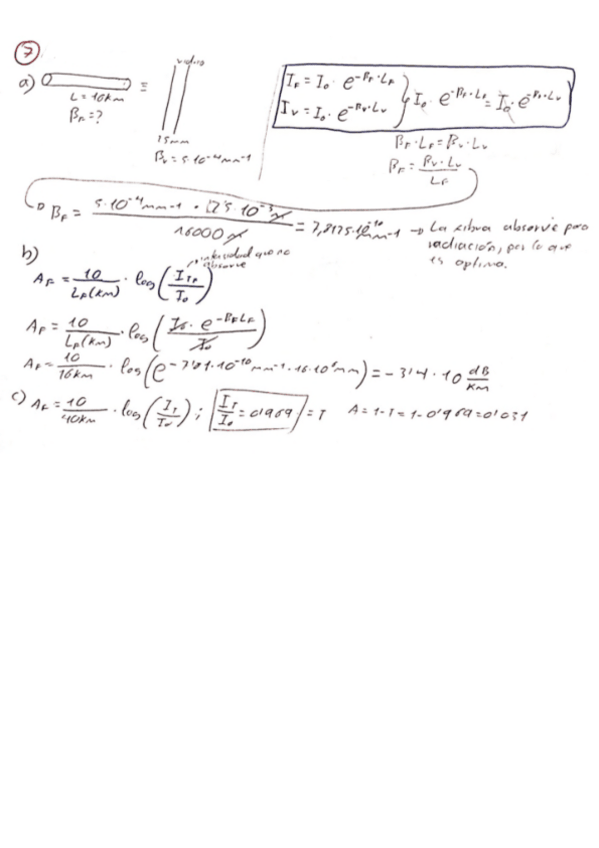 7
a) L = 16km
β_F = ?
=
vidrio
25mm
β_v = 5·10⁻⁴mm⁻¹
I_F = I_o · e^(-β_F·L_F)
I_v = I_o · e^(-β_v·L_v)
} I_o · e^(-β_F·L_F) = I_o · e^(-β_v·L_v)
β_F · L_F = β_v · L_v
β_F = β_v · L_v / L_F
→ β_F = 5·10⁻⁴mm⁻¹ · 12'5·10⁻³m / 16000m = 7,8125·10⁻¹⁰mm⁻¹ → La fibra absorve poca
radiación, por lo que
es optima.
b)
intensidad que no
absorve
A_F = 10 / L_F(km) · log(I_TF / I_o)
A_F = 10 / L_F(km) · log(I_o · e^(-β_F L_F) / I_o)
A_F = 10 / 16km · log(e^(-7'81·10⁻¹⁰mm⁻¹·16·10⁶mm)) = -3'4·10 dB/km
c) A_F = 10 / 40km · log(I_T / I_o) ; I_T / I_o = 0'969 = T A = 1-T = 1-0'969 = 0'031